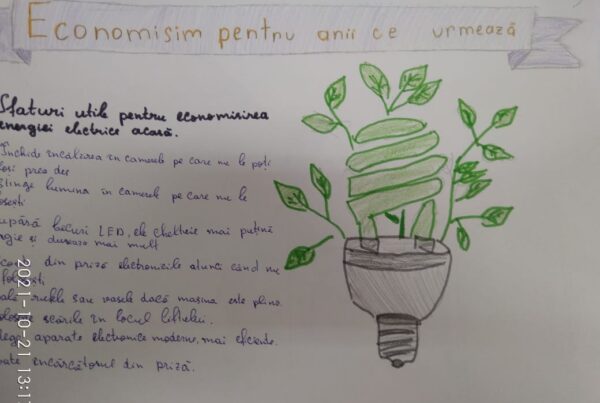 Economisim pentru anii ce urmează
Sfaturi utile pentru economisirea
energiei electrice acasă.
Închide încălzirea în camerele pe care nu le poți
prea des
Stinge lumina în camerele pe care nu le
becuri LED, ele mai puțină
și durează mai mult
din priză electronizile atunci când nu
rufele sau vasele dacă mașina este plină.
scările în locul liftului.
aparate electronice moderne, mai eficiente.
încărcătorul din priză.
2021-10-21 13:1